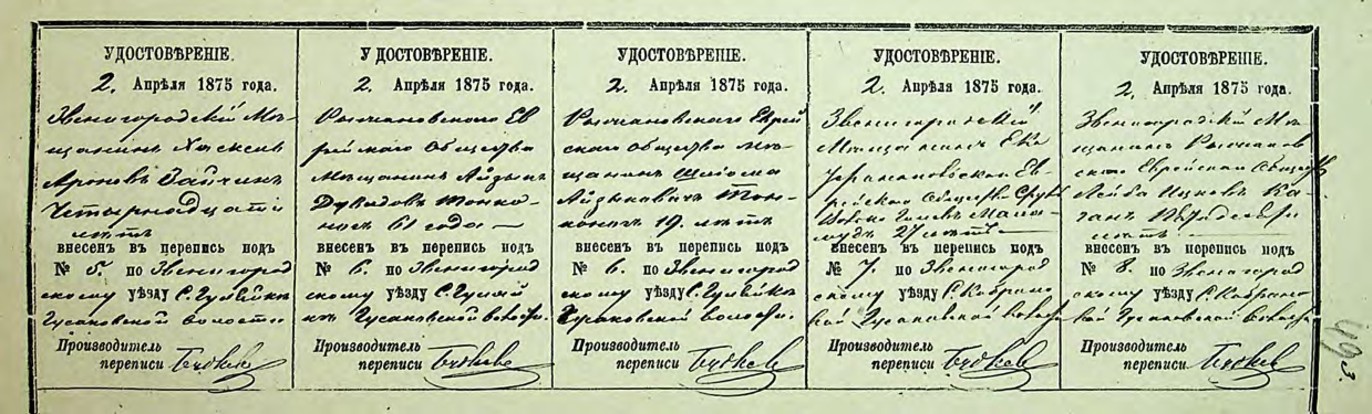 УДОСТОВѢРЕНІЕ.
2. Апрѣля 1875 года.
Звенигородскій Мѣ-
щанинъ Хаскель
Ароновъ Зайчикъ
Четырнадцати
лѣтъ
внесенъ въ перепись подъ
№ 5. по Звенигород
скому уѣзду С. Гулѣйкѣ
Гусаковской волости
Производитель
переписи
УДОСТОВѢРЕНІЕ.
2. Апрѣля 1875 года.
Ев
рейскаго Общества
Мѣщанинъ Айзыкъ
Дувидовъ Тонко-
ногъ 61 года —
внесенъ въ перепись подъ
№ 6. по Звенигород
скому уѣзду С. Гулѣй
кѣ Гусаковской волости.
Производитель
переписи
УДОСТОВѢРЕНІЕ.
2. Апрѣля 1875 года.
Еврей
скаго Общества мѣ-
щанинъ Шлёма
Айзыковичъ Тон-
коногъ 19. лѣтъ
внесенъ въ перепись подъ
№ 6. по Звенигород
скому уѣзду С. Гулѣйкѣ
Гусаковской волости.
Производитель
переписи
УДОСТОВѢРЕНІЕ.
2. Апрѣля 1875 года.
Звенигородскій
Мѣщанинъ Ека
Ев-
рейскаго Общества
27 лѣтъ —
внесенъ въ перепись подъ
№ 7. по Звенигород
скому уѣзду С. Кобрино
вой Гусаковской волости
Производитель
переписи
УДОСТОВѢРЕНІЕ.
2. Апрѣля 1875 года.
Звенигородскій Мѣ-
щанинъ
скаго Еврейскаго Общест
Лейба Ицковъ Ка-
ганъ
лѣтъ —
внесенъ въ перепись подъ
№ 8. по Звенигород
скому уѣзду С. Кобрино
вой Гусаковской волости
Производитель
переписи
493.